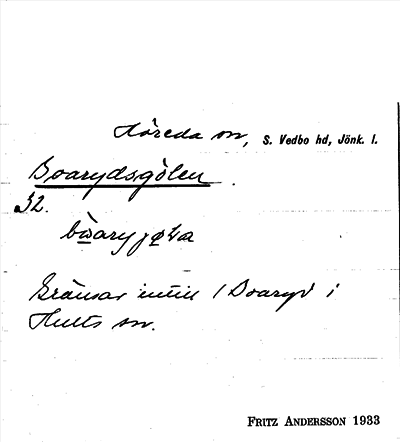 Höreda sn, S. Vedbo hd, Jönk. l.
Boarydsgölen
32.
Gränsar intill 1 Boaryd i
Hults sn.
FRITZ ANDERSSON 1933